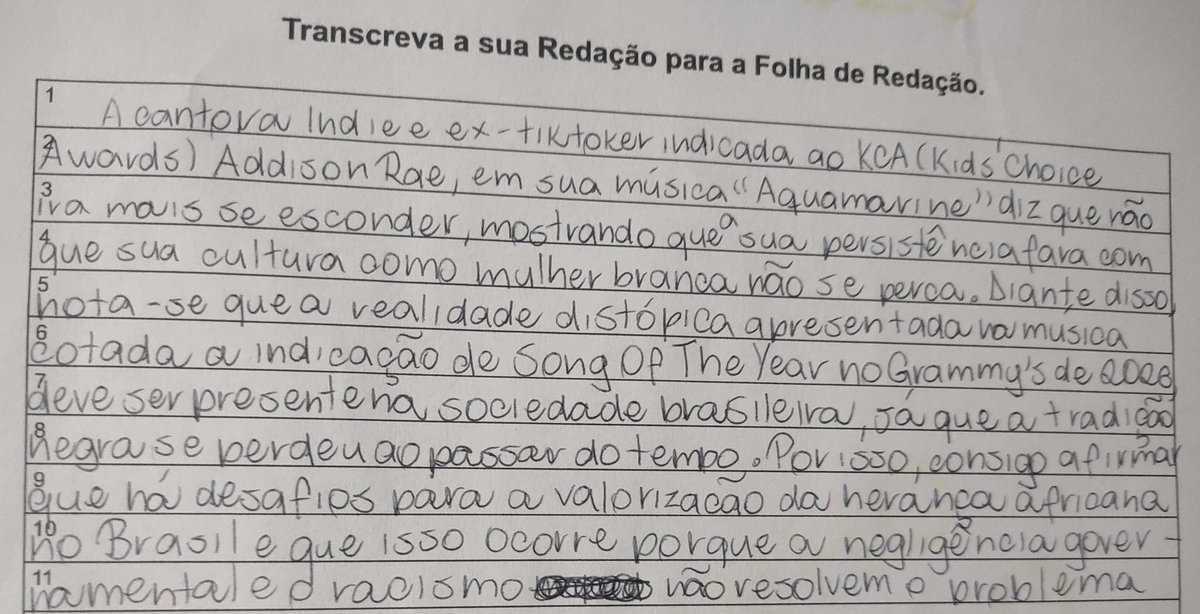 Transcreva a sua Redação para a Folha de Redação.
1 A cantora Indie e ex-tiktoker indicada ao KCA (Kids' Choice
2 Awards) Addison Rae, em sua música "Aquamarine" diz que não
3 ira mais se esconder, mostrando que a sua persistência fara com
4 que sua cultura como mulher branca não se perca. Diante disso,
5 nota-se que a realidade distópica apresentada na musica
6 cotada a indicação de Song Of The Year no Grammy's de 2026
7 deve ser presente na sociedade brasileira, já que a tradição
8 negra se perdeu ao passar do tempo. Por isso, consigo afirmar
9 que há desafios para a valorização da herança africana
10 no Brasil e que isso ocorre porque a negligência gover-
11 namental e o racismo não resolvem o problema